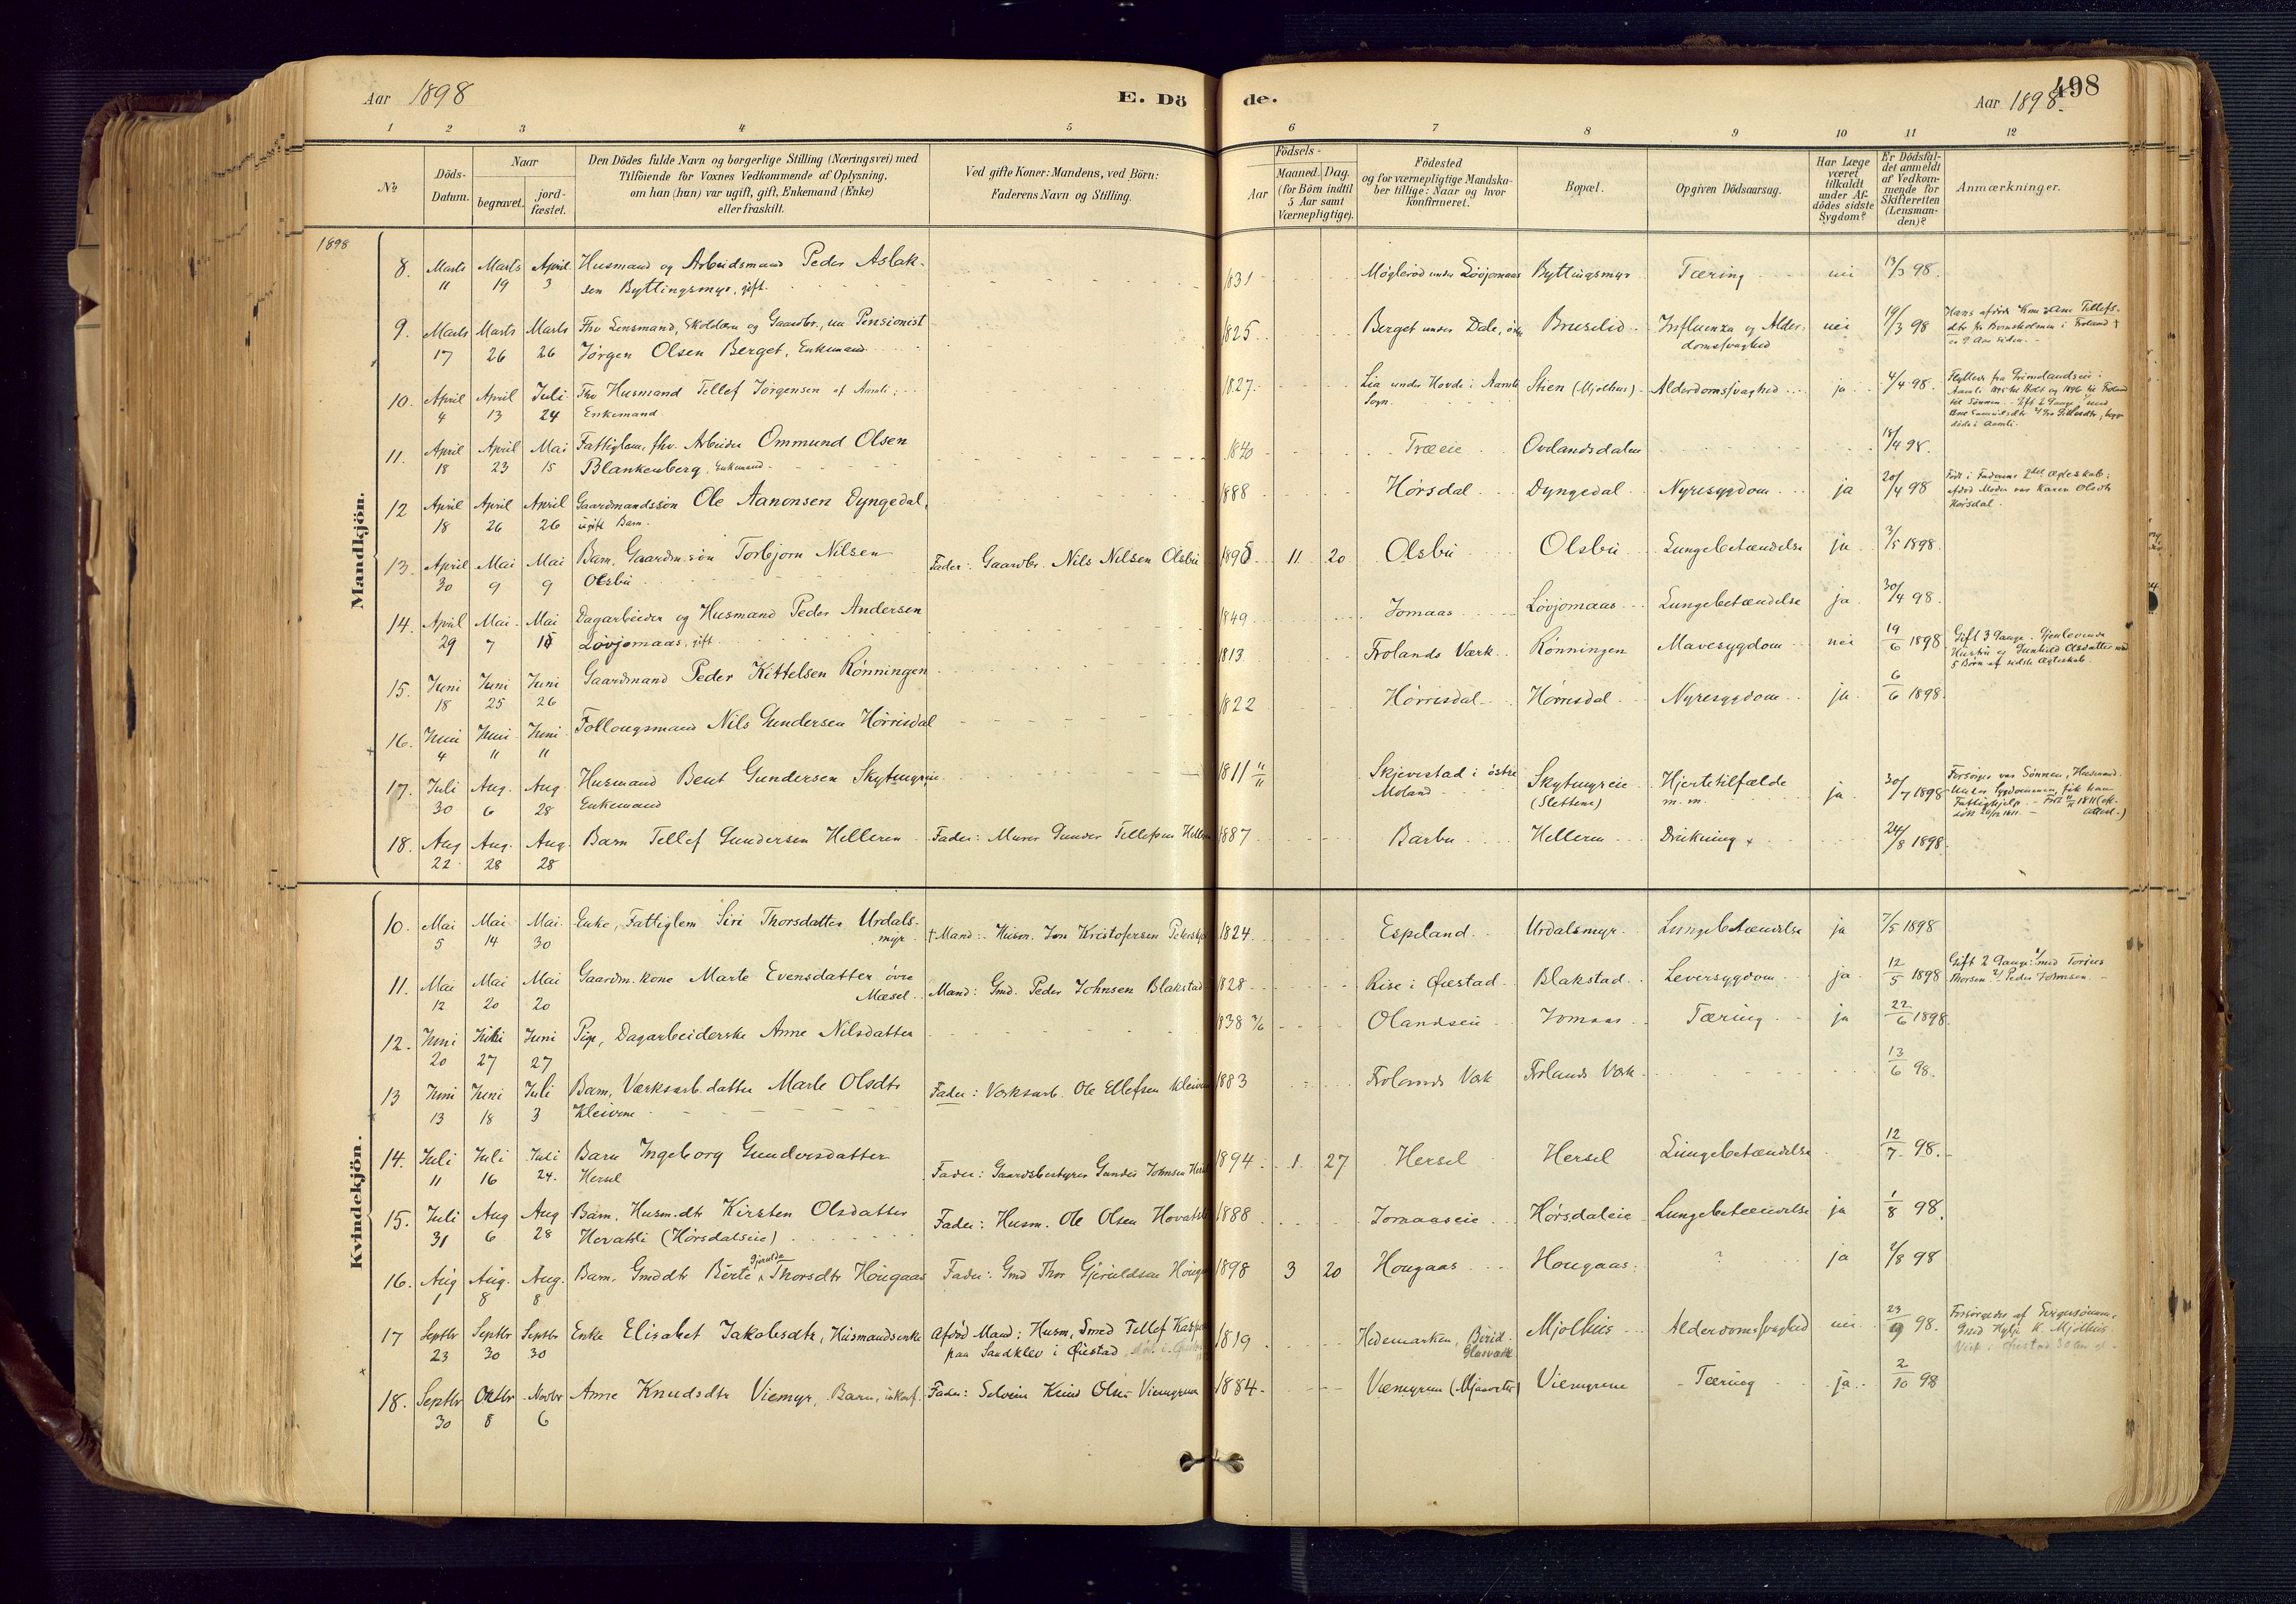 Aar 1898
E. Dö
de.
498
Aar 1898.
1 2 3 4 5 6 7 8 9 10 11 12
No
Döds-
Datum.
Naar
begravet.
jord-
fæstet.
Den Dödes fulde Navn og borgerlige Stilling (Næringsvei) med
Tilföiende for Voxnes Vedkommende af Oplysning,
om han (hun) var ugift, gift, Enkemand (Enke)
eller fraskilt.
Ved gifte Koner: Mandens, ved Börn:
Faderens Navn og Stilling.
Födsels-
Aar
Maaned. Dag.
(for Börn indtil
5 Aar samt
Værnepligtige).
Födested
og for værnepligtige Mandska-
ber tillige: Naar og hvor
konfirmeret.
Bopæl.
Opgiven Dödsaarsag.
Har Læge
været
tilkaldt
under Af-
dödes sidste
Sygdom?
Er Dödsfal-
det anmeldt
af Vedkom-
mende for
Skifteretten
(Lensman-
den)?
Anmærkninger.
1898
Mandkjön.
8. Marts Marts April Husmand og Arbeidsmand Peder Aslak-
11 19 3 sen Byttingsmyr, gift.
1831 Møglerød under Løvjomaas Byttingsmyr Tæring nei 13/3 98.
9. Marts Marts Marts Fhv Lensmand, Skolelærer og Gaardbr., nu Pensionist
17 26 26 Jørgen Olsen Berget, Enkemand
1825 Berget under Dale, Bruselid Influenza og Alder-
domssvaghed nei 19/3 98
Hans afdøde Kone Ane Tellefs-
dtr fra Bomsholmen i Froland †
er 9 Aar siden.
10. April April Juli Fhv Husmand Tellef Jørgensen af Aamli;
4 13 24 Enkemand
1827 Lia under Hovde i Aamli
Sogn. Stien (Mjølhus) Alderdomssvaghed ja 4/4 98.
11. April April Mai Fattiglem, fhv. Arbeider Ommund Olsen
18 23 15 Blankenberg, Enkemand
1840 Træeie Ovelandsdalen 18/4 98.
12 April April April Gaardmandssøn Ole Aanonsen Dyngedal,
18 26 26 ugift Barn.
1888 Hørsdal Dyngedal Nyresygdom ja 20/4 98
Født i Faderens 2det Ægteskab;
afdød Moder var Karen Olsdtr
Hørsdal.
13. April Mai Mai Barn, Gaardm.søn Torbjørn Nilsen
30 9 9 Olsbu
Fader: Gaardbr. Nils Nilsen Olsbu 1896 11 20 Olsbu Olsbu Lungebetændelse ja 3/5 1898.
14. April Mai Mai Dagarbeider og Husmand Peder Andersen
29 7 15 Løvjomaas, gift
1849 Jomaas Løvjomaas Lungebetændelse ja 30/4 98.
15. Juni Juni Juni Gaardmand Peder Kittelsen Rønningen
18 25 26
1813 Frolands Værk Rønningen Mavesygdom nei 19/6 1898
Gift 3 Gange. Gjenlevende
Hustru er Gunhild Olsdatter med
5 Børn af sidste Ægteskab.
16. Juni Juni Juni Follougsmand Nils Gundersen Hørrisdal
4 11 11
1822 Hørrisdal Hørrisdal Nyresygdom ja 6/6 1898.
17. Juli Aug. Aug Husmand Bent Gundersen Skytmyreie
30 6 28 Enkemand
1811 11/11 Skjevestad i østre
Moland Skytmyreie
(Slettene) Hjertetilfælde
m.m. ja 30/7 1898
18. Aug Aug. Aug. Barn Tellef Gundersen Helleren
22 28 28
Fader: Murer Gunder Tellefsen Helleren 1887 Barbu Helleren Drukning 24/8 1898.
Kvindekjön.
10. Mai Mai Mai Enke, Fattiglem Siri Thorsdatter Urdals-
5 14 30 myr
† Mand: Husm. Jens Kristofersen 1824 Espeland Urdalsmyr Lungebetændelse ja 7/5 1898
11. Mai Mai Mai Gaardm.kone Marte Evensdatter øvre
12 20 20 Mæsel
Mand: Gmd. Peder Johnsen Blakstad 1828 Rise i Øiestad Blakstad Leversygdom ja 12/5 1898
Gift 2 Gange: 1/ med Torjus
Thorsen 2/ Peder Johnsen
12. Juni Juni Juni Pige, Dagarbeiderske Anne Nilsdatter
20 27 27
1838 Olandseie Jomaas Tæring ja 22/6 1898.
13 Juni Juni Juli Barn, Værksarb.datter Marte Olsdtr
13 18 3 Kleivene
Fader: Værksarb. Ole Ellefsen Kleivene 1883 Frolands Værk Frolands Værk 13/6 98.
14. Juli Juli Juli Barn Ingeborg Gundersdatter
11 16 24. Hersel
Fader: Gaardsbestyrer Gunder Johnsen Hersel 1894 1 27 Hersel Hersel Lungebetændelse 12/7 98.
15. Juli Aug Aug Barn, Husm.dtr Kirsten Olsdatter
31 6 28 Hovatsli (Hørsdalseie)
Fader: Husm. Ole Olsen Hovatsli 1888 Jomaaseie Hørsdaleie Lungebetændelse ja 1/8 98.
16. Aug Aug. Aug. Barn, Gmddtr Berte Gjerulda Thorsdtr Hougaas
1 8 8
Fader: Gmd Thor Gjeruldsen Hougaas 1898 3 20 Hougaas Hougaas ? ja 2/8 98
17 Septbr Septbr Septbr Enke Elisabet Jakobsdtr, Husmandsenke
23 30 30
Afdød Mand: Husm, Smed Tellef Kaspersen
paa Sandklev i Øiestad 1819 Hedemarken, Birid
Glasværk Mjølhus Alderdomssvaghed nei 23/9 98.
18. Septbr Oktbr Novbr Anne Knudsdtr Viemyr, Barn, ukonf.
30 8 6
Fader: Selveier Knud Olsen Viemyrene 1884 Viemyren (Mjaavatn) Viemyrene Tæring ja 2/10 98